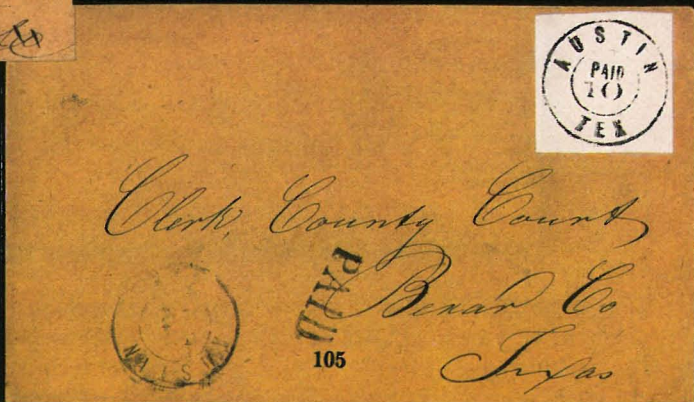 AUSTIN
PAID
10
TEX
Clerk, County Court
PAID
Bexar Co
Texas
105